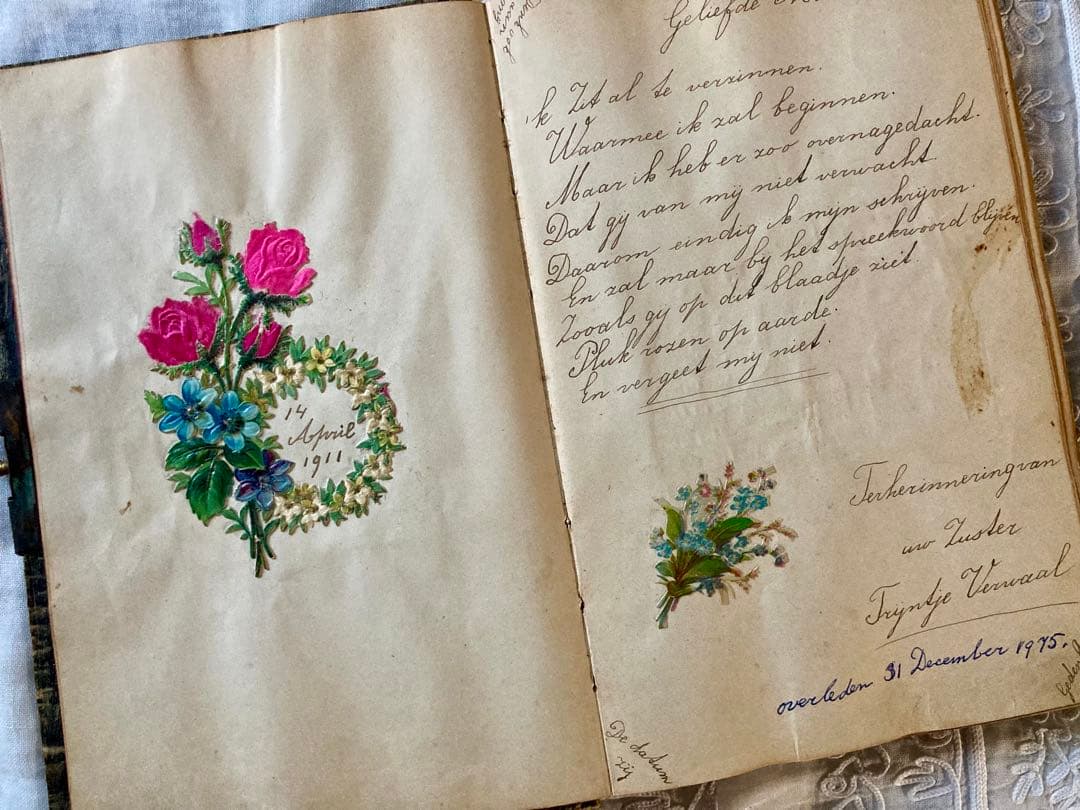 14
April
1911
Geliefde
Ik Zit al te verzinnen.
Waarmee ik zal beginnen.
Maar ik heb er zoo overnagedacht.
Dat gij van mij niet verwacht.
Daarom eindig ik mijn schrijven.
En zal maar bij het spreekwoord blijven
Zooals gij op dit blaadje ziet.
Pluk rozen op aarde.
En vergeet mij niet.
Terherinneringvan
uw Zuster
Trijntje Verwaal
overleden 31 December 1975.
De datum
zij